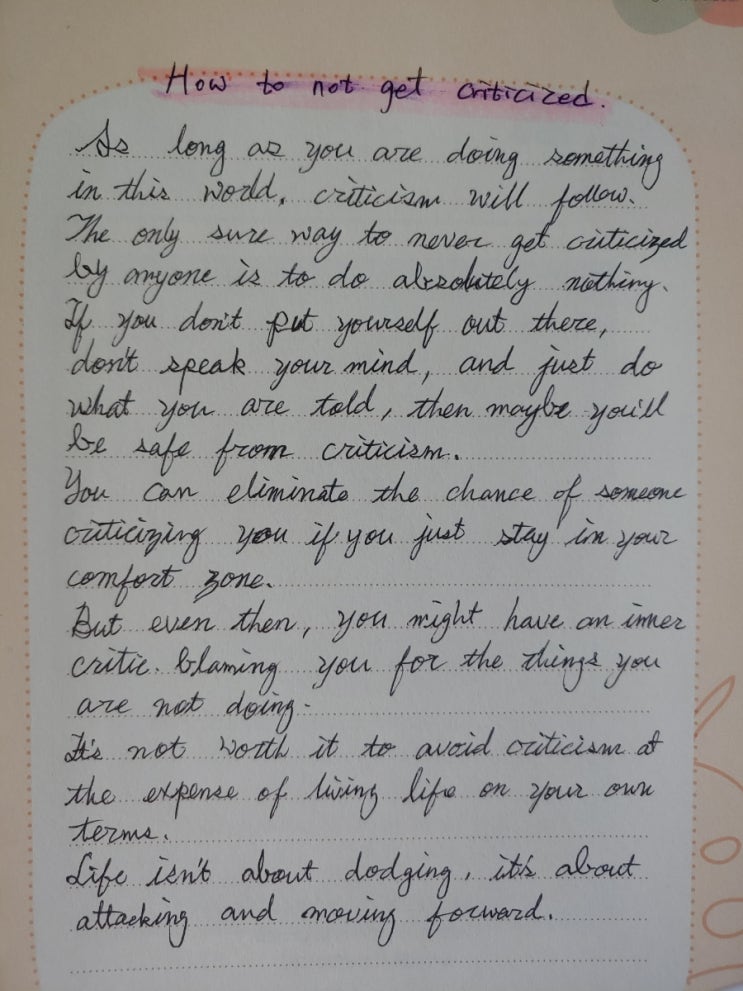 How to not get criticized.
As long as you are doing something
in this world, criticism will follow.
The only sure way to never get criticized
by anyone is to do absolutely nothing.
If you don't put yourself out there,
don't speak your mind, and just do
what you are told, then maybe you'll
be safe from criticism.
You can eliminate the chance of someone
criticizing you if you just stay in your
comfort zone.
But even then, you might have an inner
critic. blaming you for the things you
are not doing.
It's not worth it to avoid criticism at
the expense of living life on your own
terms.
Life isn't about dodging, it's about
attacking and moving forward.